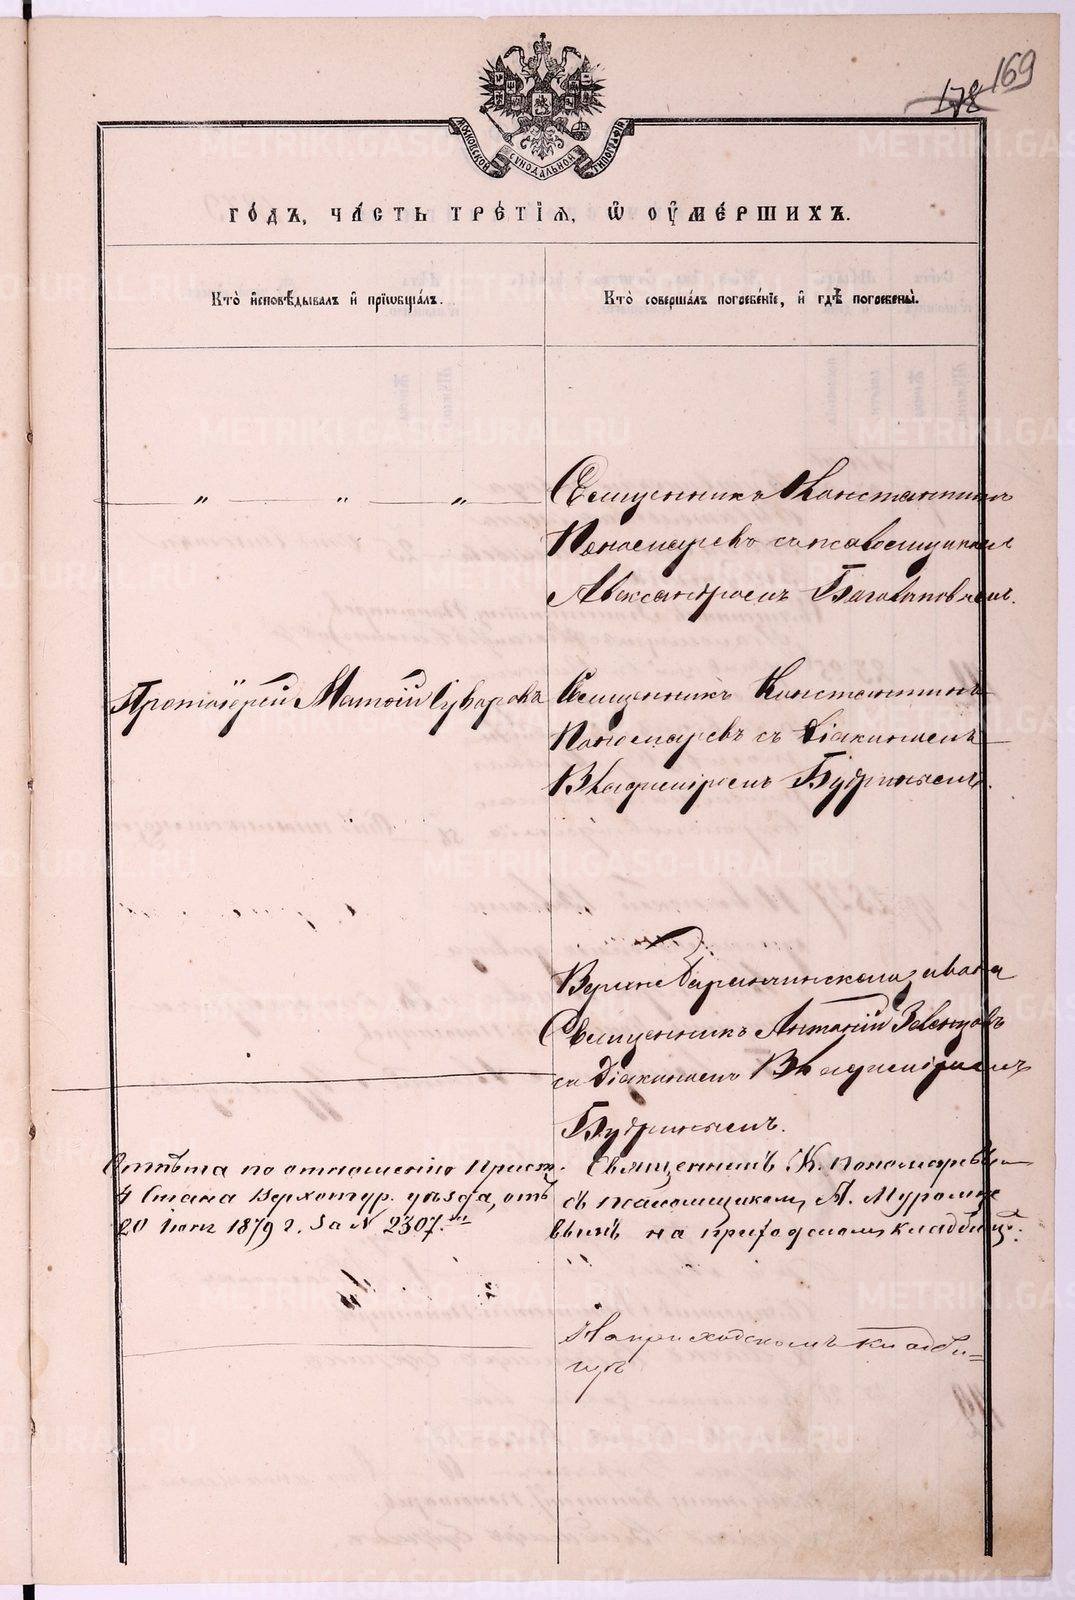 169
178
МОСКОВСКОЙ СѴНОДАЛЬНОЙ ТИПОГРАФІИ
ГО́ДЪ, ЧА́СТЬ ТРЕ́ТІѦ, Ѡ҆ ОУ҆МЕ́РШИХЪ.
Кто̀ и҆сповѣ́дывалъ и҆ прїѡбща́лъ.
Кто̀ соверша́лъ погребе́нїе, и҆ гдѣ̀ погребены̀.
„ „ „
Священникъ Константинъ
Пономаревъ съ псаломщикомъ
Александромъ Боголѣповымъ.
Протоіерей Матѳій Суворовъ
Священникъ Константинъ
Пономаревъ съ діакономъ
Владиміромъ Будринымъ.
Верхне Баранчинскаго завода
Священникъ Антоній Зеленцовъ
съ діакономъ Владиміромъ
Будринымъ.
Отпѣта по отношенію Прист.
4 Стана Верхотур. уѣзда, отъ
20 іюня 1879 г. за № 2307.
Священникъ К. Пономаревъ
съ псаломщикомъ А. Муромце
вымъ на приходскомъ кладбищѣ.
На приходскомъ кладби=
щѣ